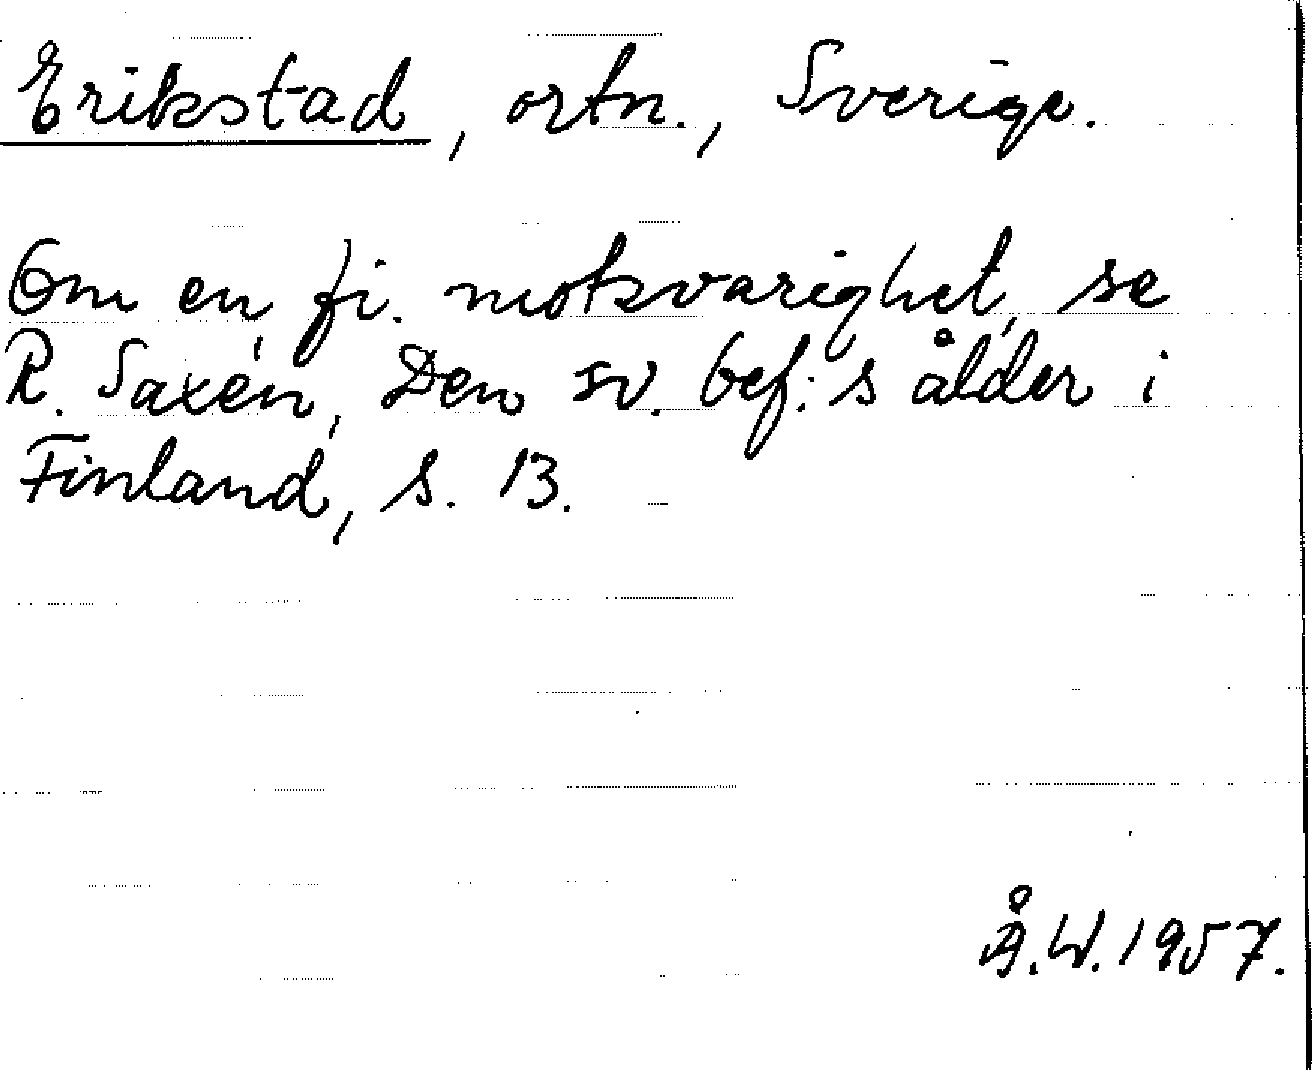 Erikstad, ortn., Sverige.
Om en fi. motsvarighet, se
R. Saxén, Den sv. bef:s ålder i
Finland, s. 13.
Å.W. 1957.